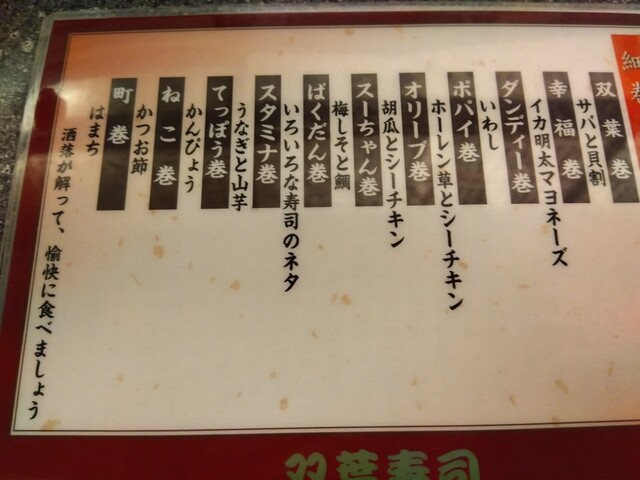 細巻
双葉巻
サバと貝割
幸福巻
イカ明太マヨネーズ
ダンディー巻
いわし
ポパイ巻
ホーレン草とシーチキン
オリーブ巻
胡瓜とシーチキン
スーちゃん巻
梅しそと鯛
ばくだん巻
いろいろな寿司のネタ
スタミナ巻
うなぎと山芋
てっぽう巻
かんぴょう
ねこ巻
かつお節
町巻
はまち
洒落が解って、愉快に食べましょう
双葉寿司